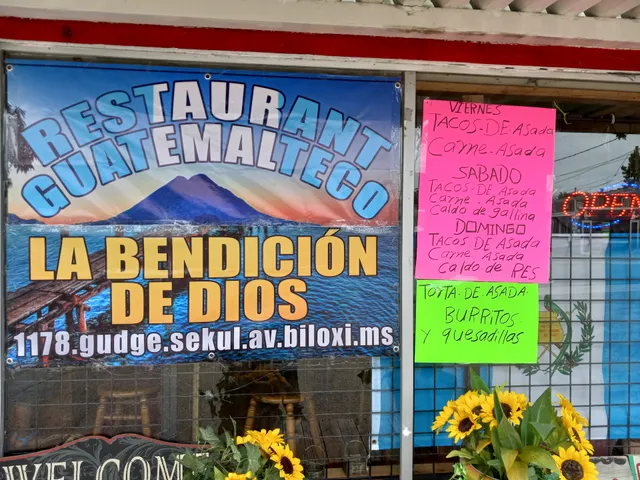 RESTAURANT
GUATEMALTECO
LA BENDICIÓN
DE DIOS
1178.gudge.sekul.av.biloxi.ms
VIERNES
TACOS.DE ASada
Carne.Asada
SABADO
TACOS.DE Asada
Carne.Asada
Caldo de gallina
DOMINGO
Tacos DE Asada
Carne Asada
Caldo de PES
TOTTA.DE ASADA.
BURRITOS
Y quesadillas
OPEN
WELCOME